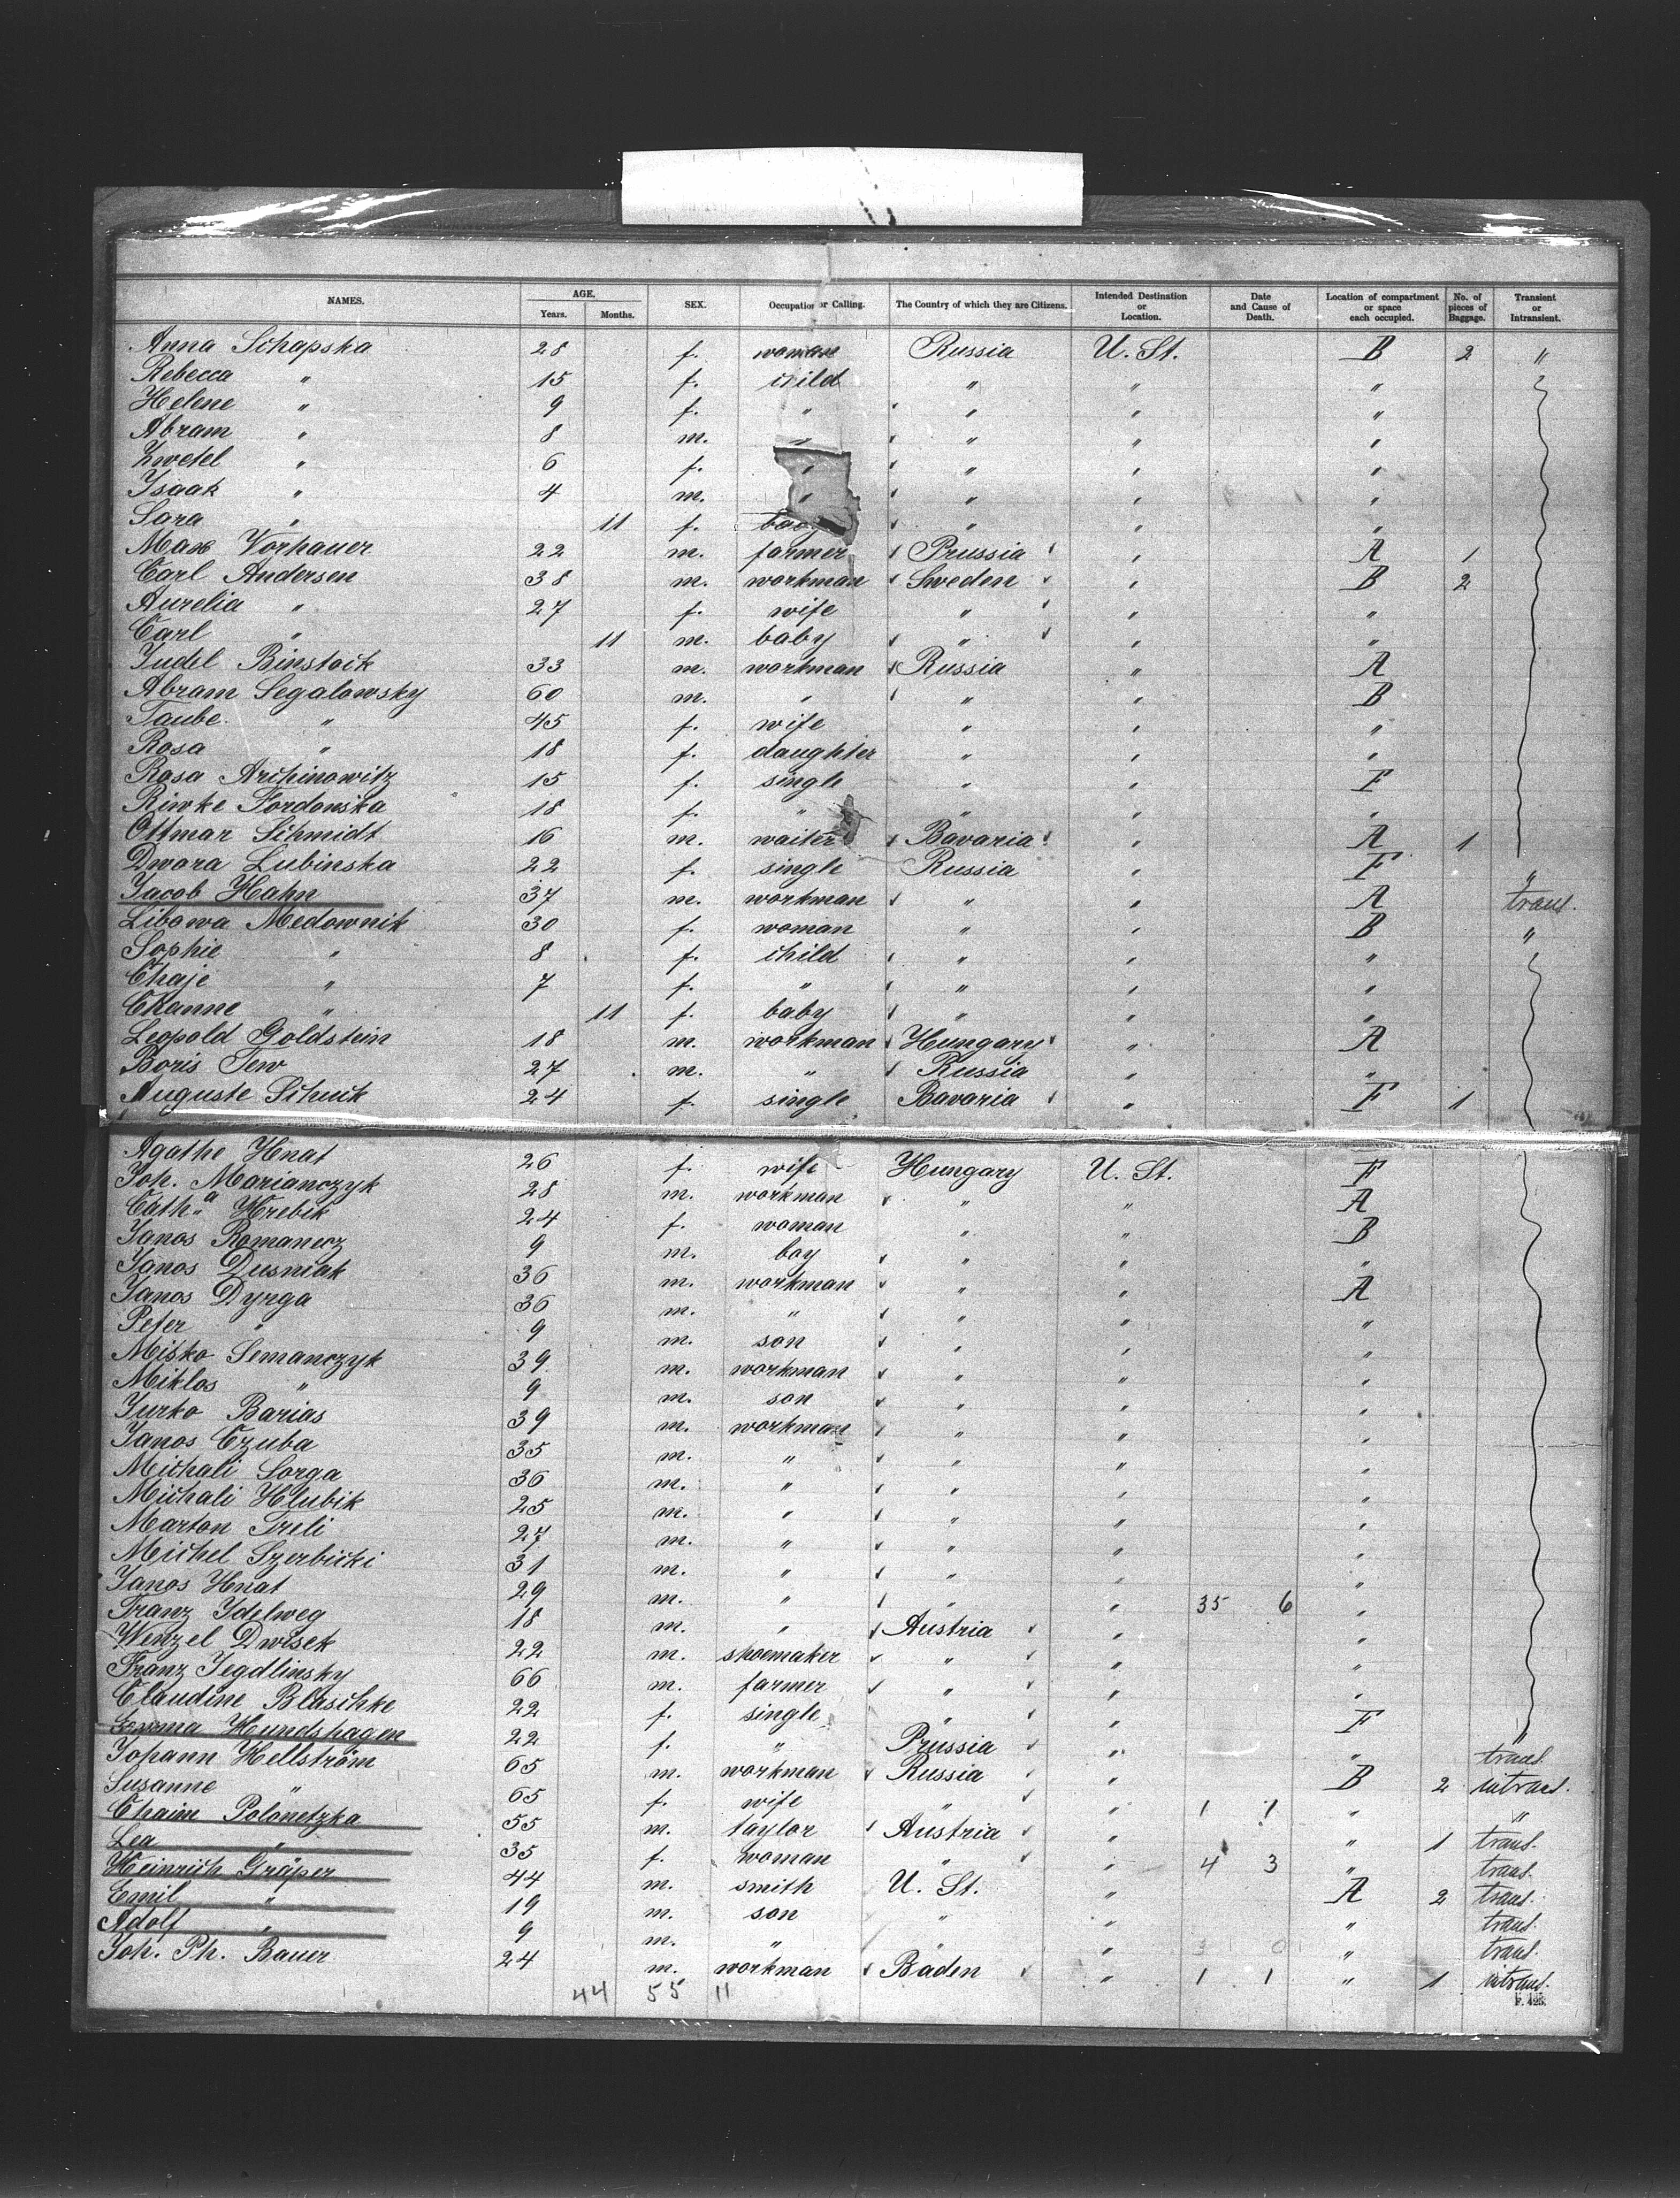 NAMES. AGE. Years. Months. SEX. Occupation or Calling. The Country of which they are Citizens. Intended Destination or Location. Date and Cause of Death. Location of compartment or space each occupied. No. of pieces of Baggage. Transient or Intransient.
Anna Schapska 28 f. woman Russia U. St. B 2 "
Rebecca " 15 f. child " " "
Helene " 9 f. " " " "
Abram " 8 m. " " " "
Zwetel " 6 f. " " " "
Isaak " 4 m. " " " "
Sara " 11 f. baby " " "
Max Vorhauer 22 m. farmer Prussia " A 1
Carl Andersen 38 m. workman Sweden " B 2
Aurelia " 27 f. wife " " "
Carl " 11 m. baby " " "
Judel Binstock 33 m. workman Russia " A
Abram Segalowsky 60 m. " " " B
Taube " 45 f. wife " " "
Rosa " 18 f. daughter " " "
Rosa Archinowitz 15 f. single " " F
Riwke Fordonska 18 f. " " " "
Ottmar Schmidt 16 m. waiter Bavaria " A 1
Dwora Lubinska 22 f. single Russia " F "
Jacob Hahn 37 m. workman " " A trans.
Libowa Medownik 30 f. woman " " B "
Sophie " 8 f. child " " "
Chaje " 7 f. " " " "
Channe " 11 f. baby " " "
Leopold Goldstein 18 m. workman Hungary " A
Boris Tew 27 m. " Russia " "
Auguste Schuck 24 f. single Bavaria " F 1
Agathe Hnat 26 f. wife Hungary U. St. F
Joh. Marianczyk 28 m. workman " " A
Cath.a Hrebik 24 f. woman " " B
Janos Romanecz 9 m. boy " " "
Janos Dusniak 36 m. workman " " A
Janos Dyrga 36 m. " " " "
Peter " 9 m. son " " "
Misko Semanczyk 39 m. workman " " "
Miklos " 9 m. son " " "
Jurko Barias 39 m. workman " " "
Janos Czuba 35 m. " " " "
Michali Sorga 36 m. " " " "
Michali Hlubik 25 m. " " " "
Marton Treli 27 m. " " " "
Michel Szerbicki 31 m. " " " "
Janos Hnat 29 m. " " " 35 6 "
Franz Idelweg 18 m. " Austria " "
Wenzel Dwisek 22 m. shoemaker " " "
Franz Jegdlinsky 66 m. farmer " " "
Claudine Blaschke 22 f. single " " F "
Emma Hundshagen 22 f. " Prussia " " trans.
Johann Hellström 65 m. workman Russia " B 2 intrans.
Susanne " 65 f. wife " " 1 1 " "
Chaim Polonetzka 55 m. taylor Austria " " 1 trans.
Lea " 35 f. woman " " 4 3 " trans.
Heinrich Gräper 44 m. smith U. St. " A 2 trans.
Emil " 19 m. son " " " trans.
Adolf " 9 m. " " " 3 0 " trans.
Joh. Ph. Bauer 24 m. workman Baden " 1 1 " 1 intrans.
44 55 11
F. 425.